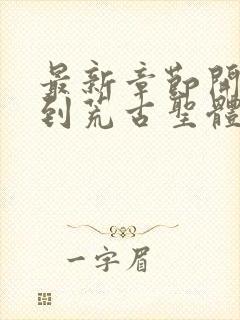 最新章節開
到荒古聖體
一字眉